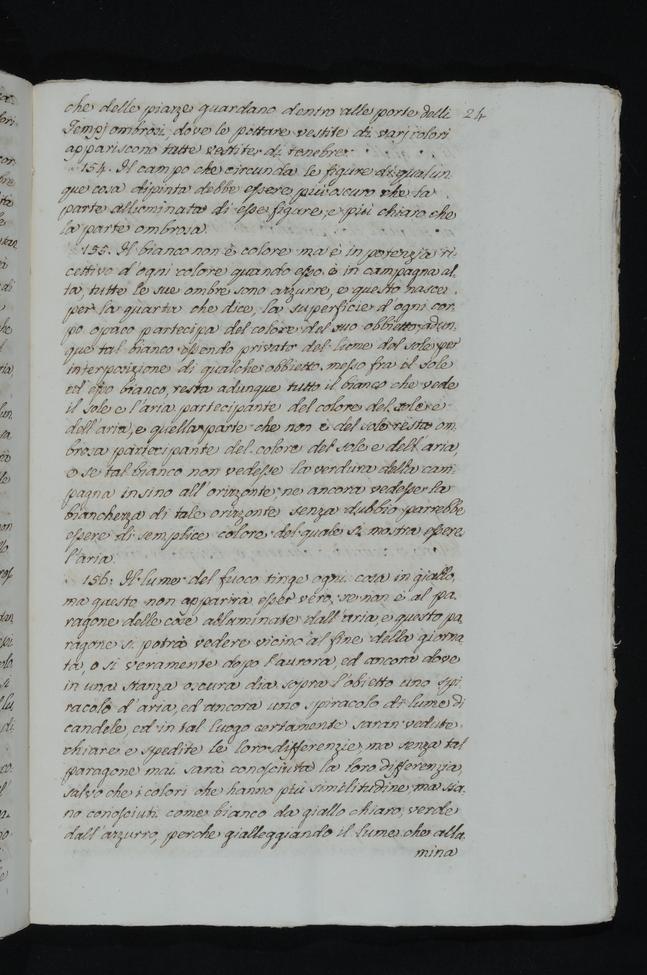 che delle piazze guardano dentro alle porte delli 24
Tempj ombrosi, dove le pitture vestite di varj colori
appariscono tutte vestite di tenebre.
154. Il campo che circunda le figure di qualun
que cosa dipinta debbe essere più oscuro che la
parte alluminata di esse figure, e più chiaro che
la parte ombrosa.
155. Il bianco non è colore ma è in potenzia ri
cettivo d'ogni colore quando esso è in campagna al
ta, tutte le sue ombre sono azzurre, e questo nasce
per la quarta che dice, la superficie d'ogni cor
po opaco partecipa del colore del suo obbietto, adun
que tal bianco essendo privato del lume del sole per
interposizione di qualche obbietto messo fra il sole
ed esso bianco, resta adunque tutto il bianco che vede
il sole e l'aria partecipante del colore del sole e
dell'aria, e quella parte che non è del sole resta om
brosa partecipante del colore del sole e dell'aria,
e se tal bianco non vedesse la verdura della cam
pagna insino all'orizonte, ne ancora vedesse la
bianchezza di tale orizonte senza dubbio parrebbe
essere di semplice colore del quale si mostra essere
l'aria.
156. Il lume del fuoco tinge ogni cosa in giallo,
ma questo non apparirà esser vero, se non è al pa
ragone delle cose alluminate dall'aria, e questo pa
ragone si potrà vedere vicino al fine della giorna
ta, o si veramente dopo l'aurora, ed ancora dove
in una stanza oscura dia sopra l'obietto uno spi
racolo d'aria, ed ancora uno spiracolo di lume di
candele, ed in tal luogo certamente saran vedute
chiare e spedite le loro differenzie, ma senza tal
paragone mai sarà conosciuta la loro differenzia,
salvo che i colori che hanno più similitudine, ma sia
no conosciuti come bianco da giallo chiaro, verde
dall'azzurro, perche gialleggiando il lume che allu
mina